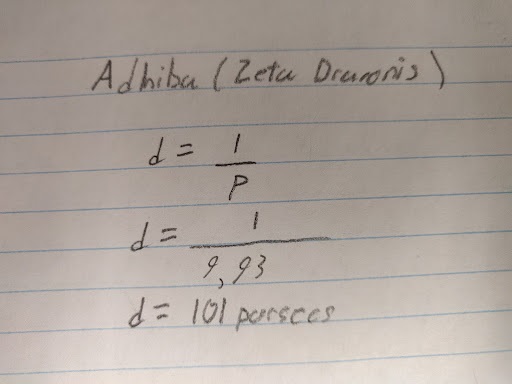 Adhiba (Zeta Draronis)
d = 1/P
d = 1/9,93
d = 101 parsces